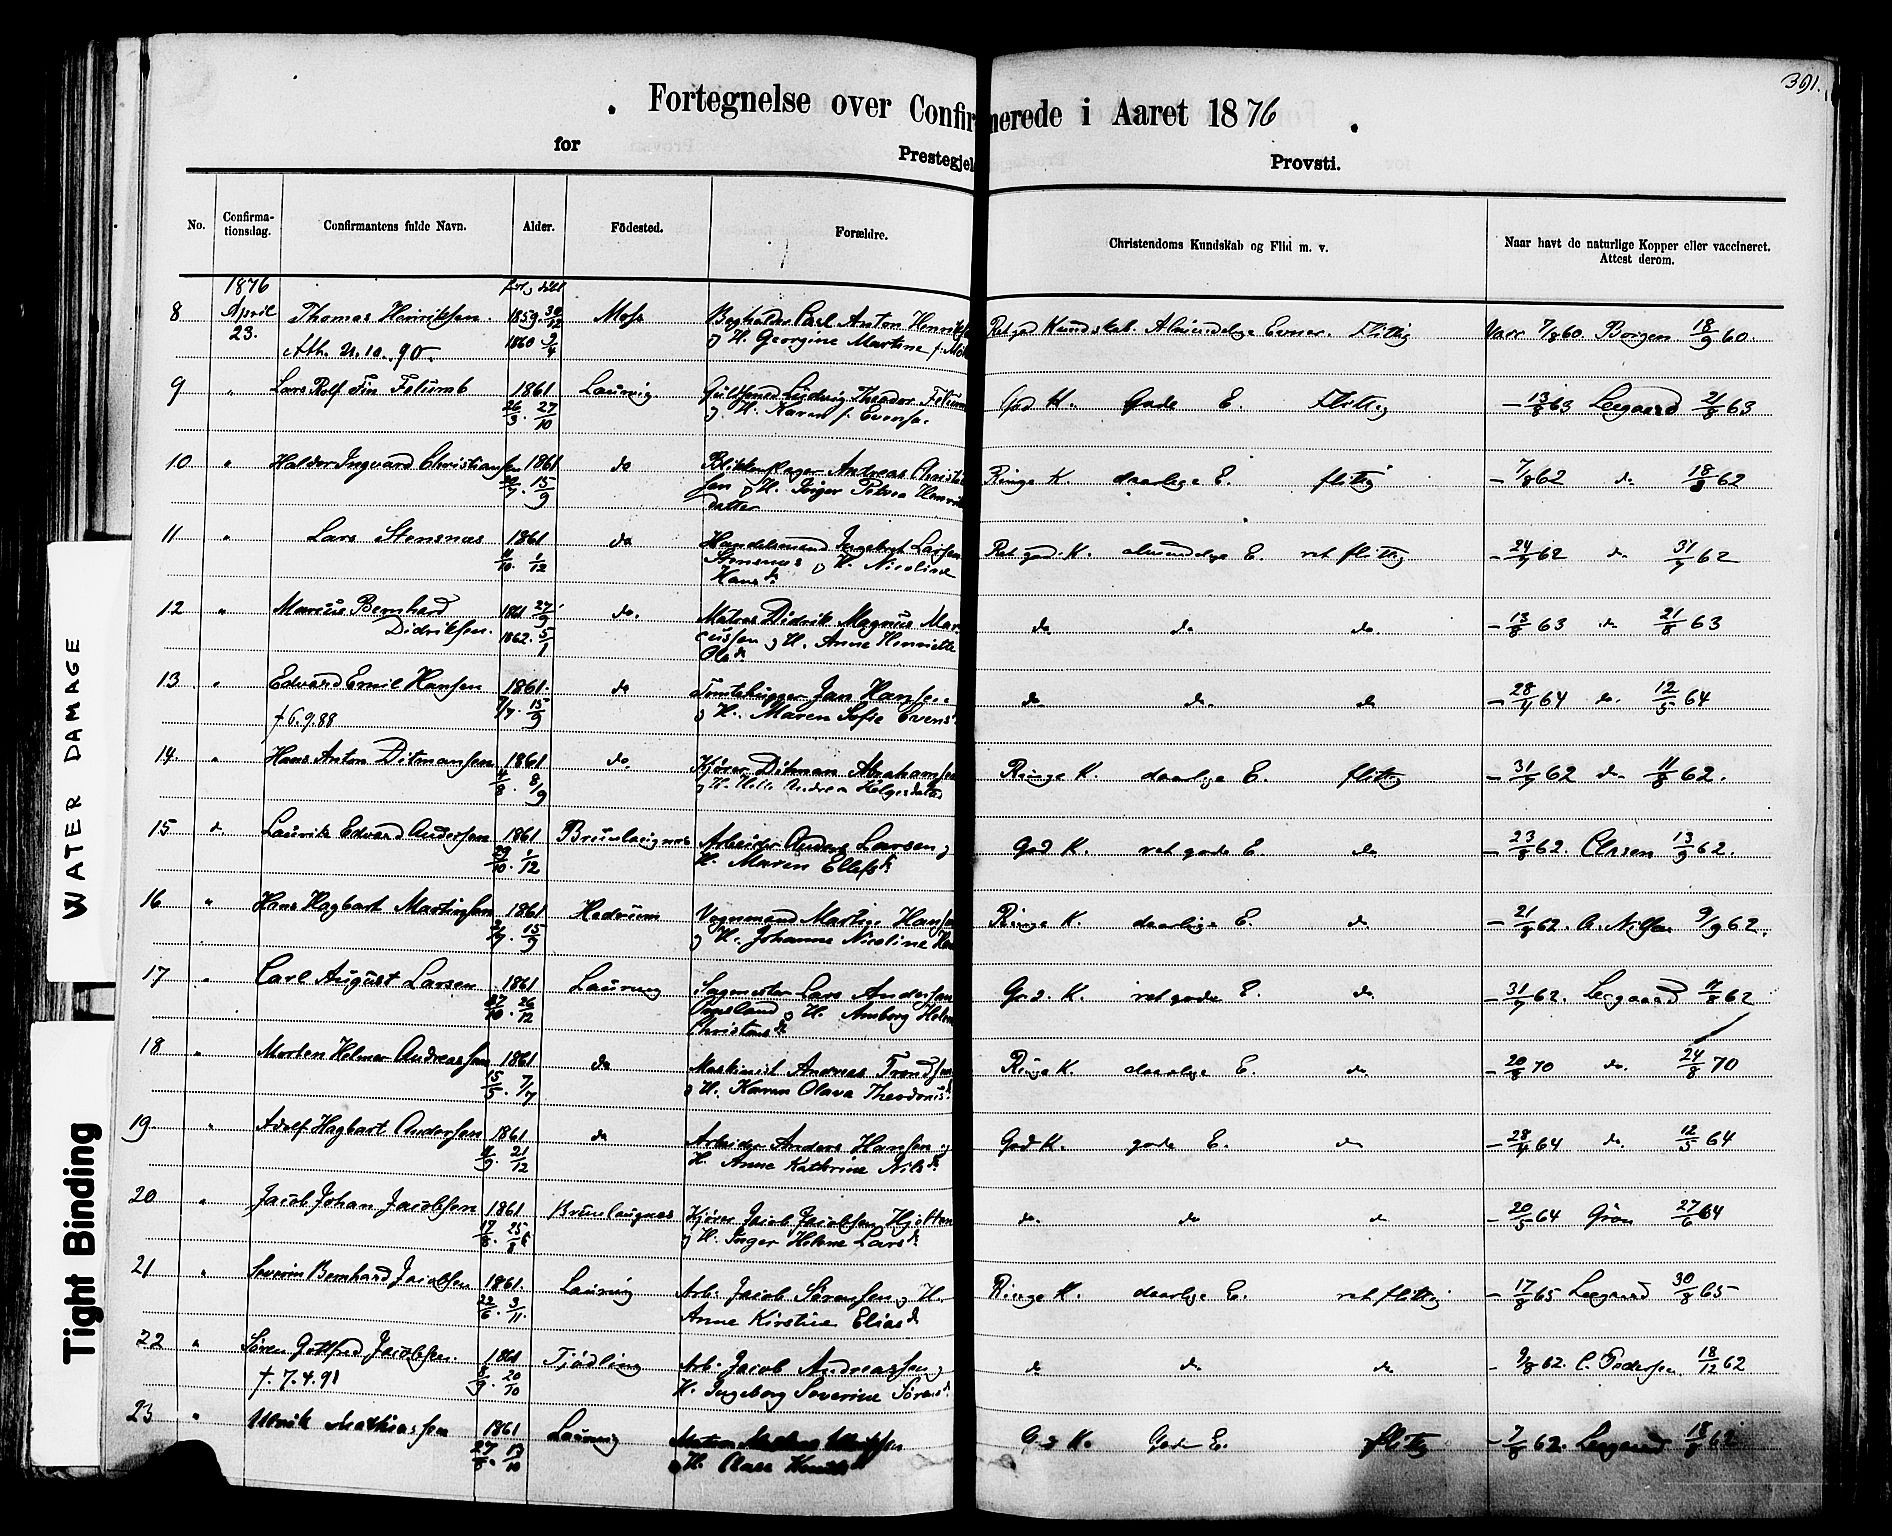 391.
Fortegnelse over Confirmerede i Aaret 1876
for Prestegjel Provsti.
No. Confirma-tionsdag. Confirmantens fulde Navn. Alder. Födested. Forældre. Christendoms Kundskab og Flid m. v. Naar havt de naturlige Kopper eller vaccineret. Attest derom.
1876 født
8 April 23. Thomas Henriksen. 1859 30/12 Moss Bogholder Carl Anton Henriks Ret god Kundskab. Almindelige Evner. Flittig Vacc 7/8 60 Borgen 18/9 60.
Ath. 21.10.90. 1860 9/4 og H. Georgine Martine f.
9 " Lars Rolf Fin Felumb 1861 Laurvig Guldsmed Ludvig Theodor Felum God K. Gode E. Flittig - 13/8 63 Leegaard 21/8 63
26/3. 27/10 og H. Karen f. Evense.
10 " Haldor Ingvard Christiansen 1861 do Blikkenslager Andreas Christi Ringe K. daarlige E. flittig - 7/8 62 do 18/8 62
15/9 sen og H. Inger Petrea Henrik
datter
11 " Lars Stensnæs 1861 do Handelsmand Ingebret Larsen Ret god K. almindelige E. ret flittig - 24/7 62 do 31/7 62
11/10. 1/12 Stensnæs og H. Nicoline
Hans d.
12 " Marcus Bernhard 1861 27/9 do. Matros Didrik Magnus Mar- do do do. - 13/8 63 do 21/8 63
Didriksen. 1862. 5/1 cussen og H. Anne Henriette
Ole d.
13 " Edvard Emil Hansen 1861. do Tomtehugger Jan Hansen do do. do - 28/4 64 do. 12/5 64
† 6.9.88 7/7. 15/9 og H. Maren Sofie Evens
14 " Hans Anton Ditmansen 1861 do. Kjører Ditman Abrahamsen Ringe K. daarlige E. flittig - 31/7 62 do 11/8 62.
4/8. 8/9 og H. Helle Andrea Holgersdatter
15 " Laurits Edvard Andersen 1861 Brunlaugnæs Arbeider Anders Larsen og God K. ret gode E. do - 23/8 62. Olsen 13/9 62.
29/10. 1/12 H. Maren Ellefs d.
16 " Hans Hagbart Martinsen 1861 Hedrum Vognmand Martin Hansen Ringe K. daarlige E. do - 21/8 62. A. Nilsen 9/9 62.
15/9 og H. Johanne Nicoline
17 " Carl August Larsen 1861 Laurvig Sagmester Lars Andersen God. K. ret gode E. do - 31/7 62. Leegaard 11/8 62
27/10. 26/12 og H. Amborg Helene
Christens d.
18 " Morten Helmer Andreassen 1861 do Maskinist Andreas Trondsen Ringe K. daarlige E. do. - 20/8 70 do. 24/8 70
15/5. 7/7 og H. Karen Olava Theodorus d.
19 " Adolf Hagbart Andersen 1861 do Arbeider Anders Hansen og God K. gode E. do - 28/4 64 do. 12/5 64
4/9. 21/12 H. Anne Kathrine Nils d.
20 " Jacob Johan Jacobsen 1861 Brunlaugnæs Kjører Jacob Jacobsen Hjelten do. do do - 20/5 64 Grøn 27/6 64
17/8. 25/8 og H. Inger Helene Lars d.
21 " Severin Bernhard Jacobsen 1861. Laurvig Arb. Jacob Sørensen og H. Ringe K. daarlige E. ret flittig - 17/8 65 Leegaard 30/8 65
22/6. 3/11. Anne Kirstine Elias d.
22 " Søren Gottfred Jacobsen. 1861 Tjødling Arb. Jacob Andreassen og do do do - 9/8 62. C. Pedersen 18/12 62
†. 7.4.91 8/9. 20/10 H. Ingeborg Severine Sørens d.
23 " Ulrik Mathiassen 1861 Laurvig God K. Gode E. flittig - 7/8 62. Leegaard 18/8 62
27/8. 13/10 og H.
WATER DAMAGE
Tight Binding